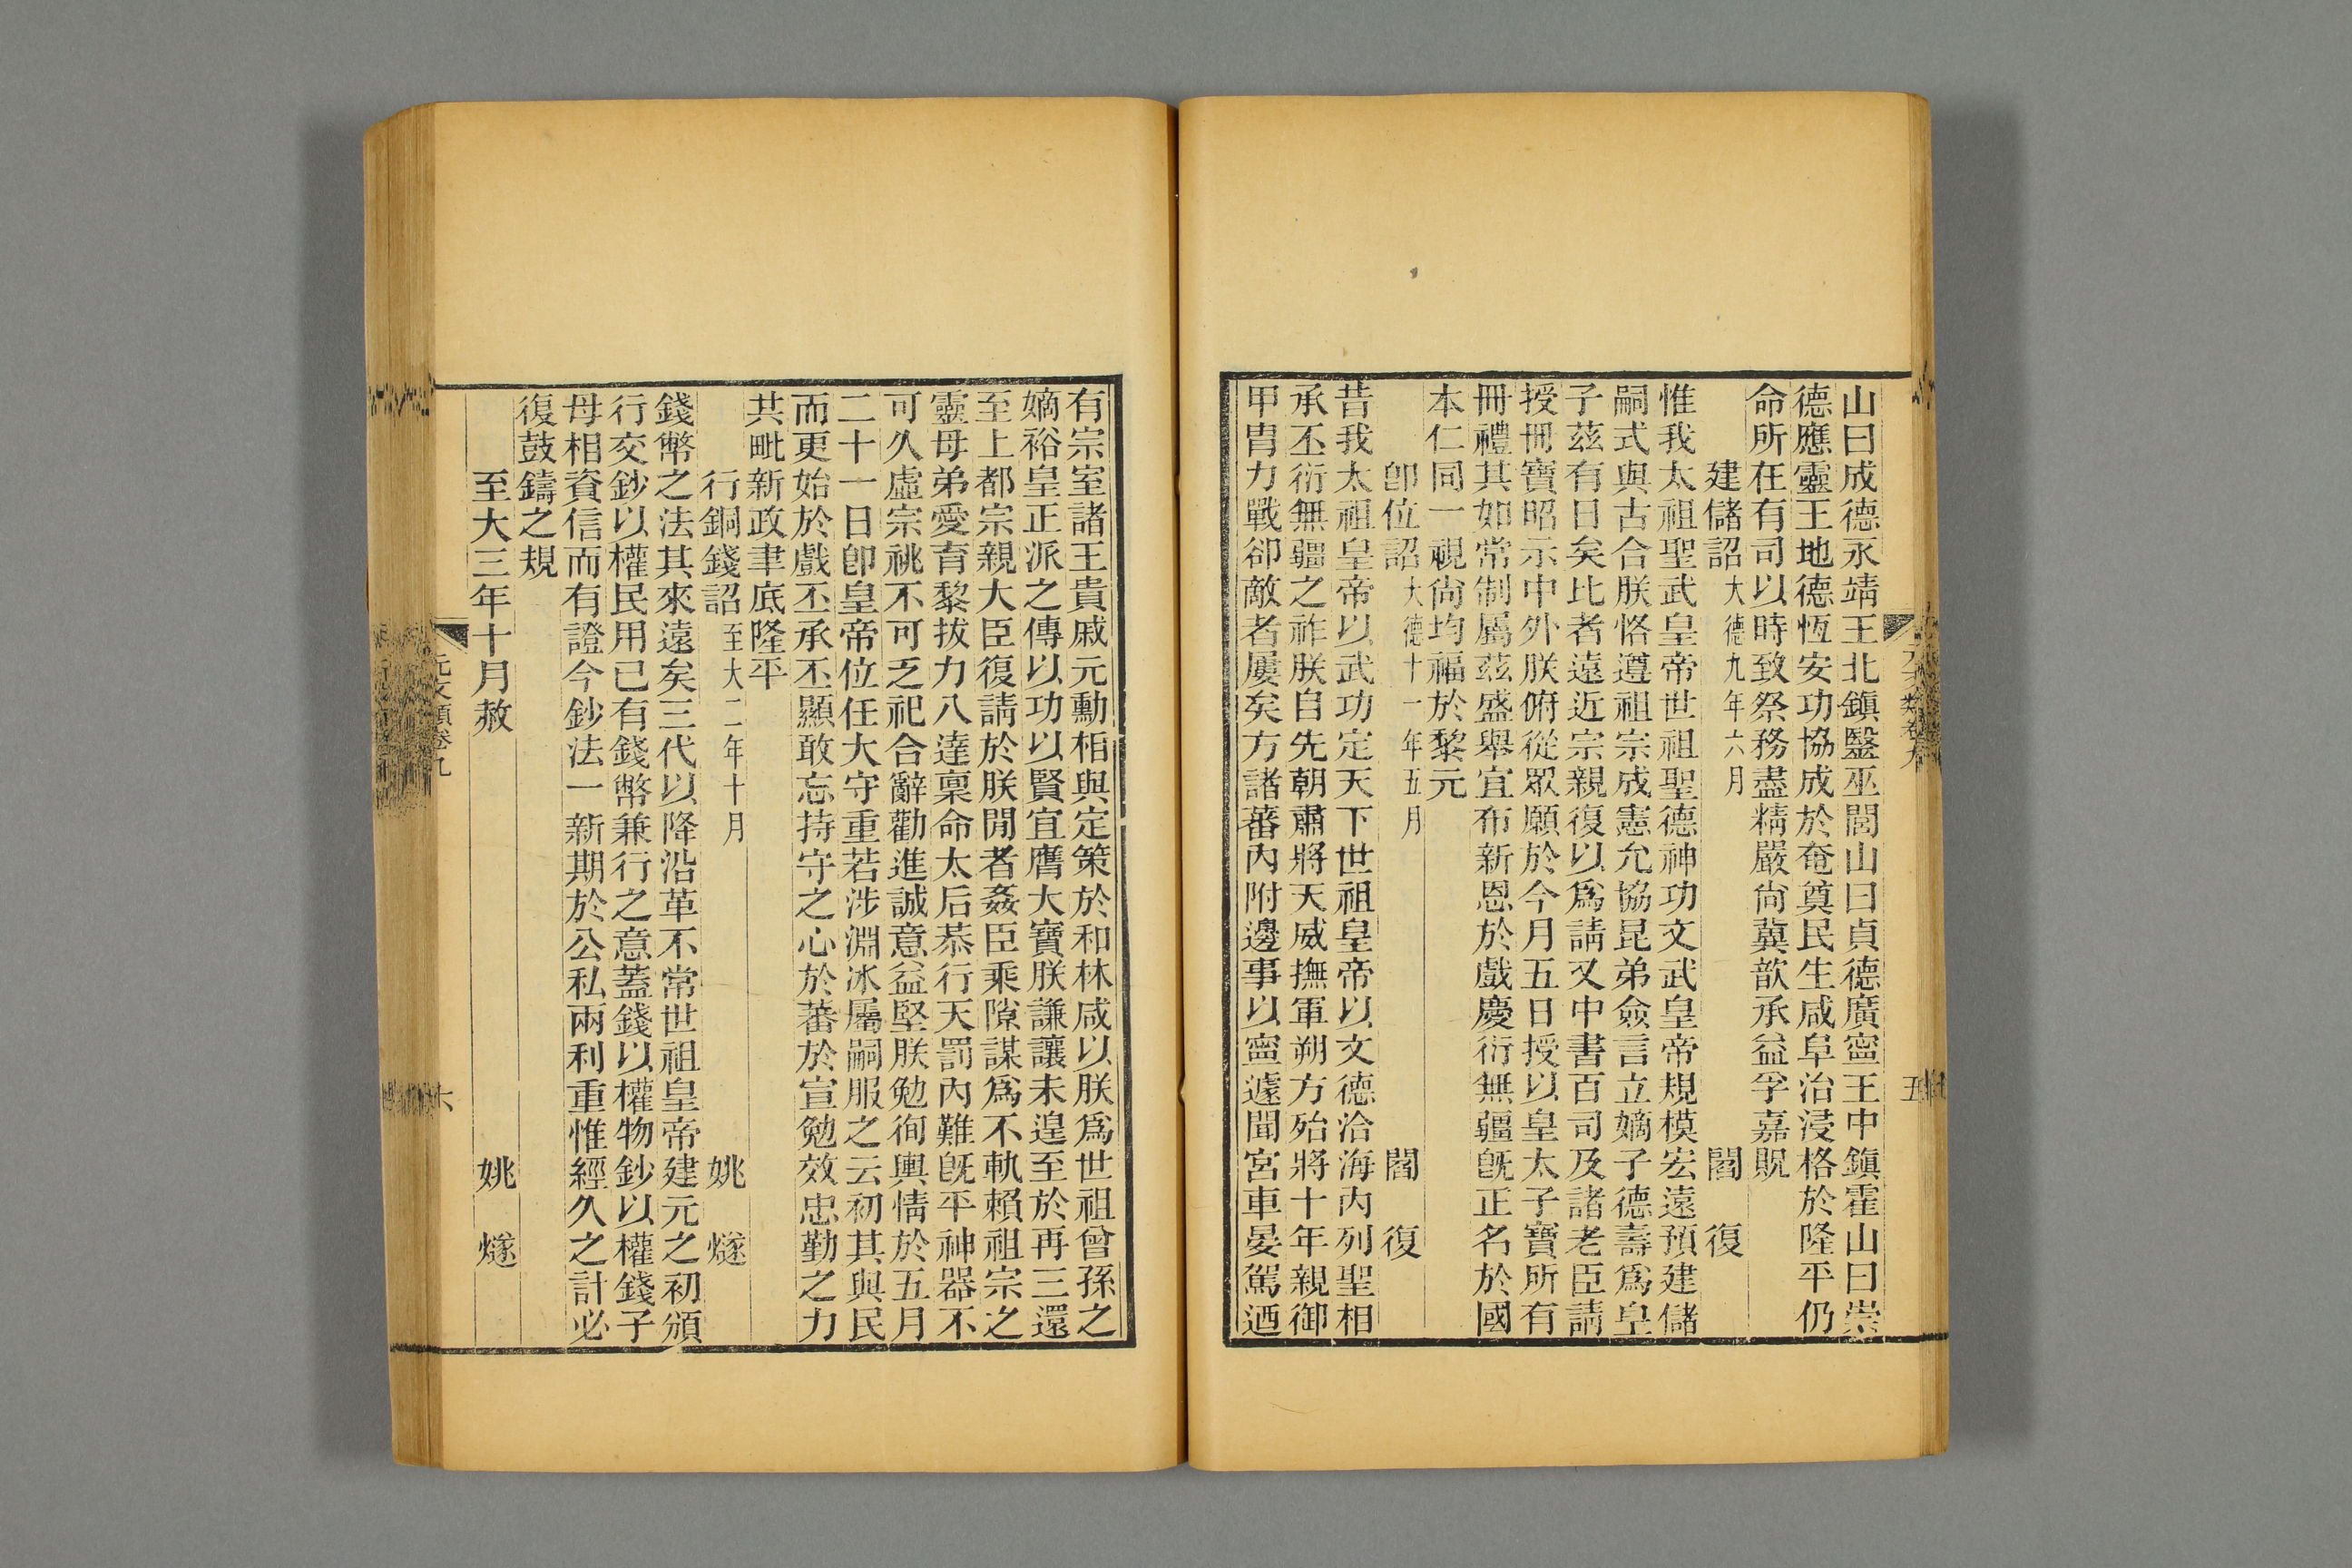 山曰成德永靖王北鎮毉巫閭山曰貞德廣寧王中鎮霍山曰崇
德應靈王地德恆安功協成於奄奠民生咸阜治浸格於隆平仍
命所在有司以時致祭務盡精嚴尙冀歆承益孚嘉貺
建儲詔 大德九年六月 閻復
惟我太祖聖武皇帝世祖聖德神功文武皇帝規模宏遠預建儲
嗣式與古合朕恪遵祖宗成憲允協昆弟僉言立嫡子德壽爲皇
子茲有日矣比者遠近宗親復以爲請又中書百司及諸老臣請
授冊寶昭示中外朕俯從眾願於今月五日授以皇太子寶所有
冊禮其如常制屬茲盛舉宜布新恩於戲慶衍無疆旣正名於國
本仁同一視尙均福於黎元
卽位詔 大德十一年五月 閻復
昔我太祖皇帝以武功定天下世祖皇帝以文德洽海內列聖相
承丕衍無疆之祚朕自先朝肅將天威撫軍朔方殆將十年親御
甲冑力戰卻敵者屢矣方諸蕃內附邊事以寧遽聞宮車晏駕迺
有宗室諸王貴戚元勳相與定策於和林咸以朕爲世祖曾孫之
嫡裕皇正派之傳以功以賢宜膺大寶朕謙讓未遑至於再三還
至上都宗親大臣復請於朕閒者姦臣乘隙謀爲不軌賴祖宗之
靈母弟愛育黎拔力八達稟命太后恭行天罰內難旣平神器不
可久虛宗祧不可乏祀合辭勸進誠意益堅朕勉徇輿情於五月
二十一日卽皇帝位任大守重若涉淵冰屬嗣服之云初其與民
而更始於戲丕承丕顯敢忘持守之心於蕃於宣勉效忠勤之力
共毗新政聿底隆平
行銅錢詔 至大二年十月 姚燧
錢幣之法其來遠矣三代以降沿革不常世祖皇帝建元之初頒
行交鈔以權民用已有錢幣兼行之意蓋錢以權物鈔以權錢子
母相資信而有證今鈔法一新期於公私兩利重惟經久之計必
復鼓鑄之規
至大三年十月赦 姚燧
元文類卷九
六